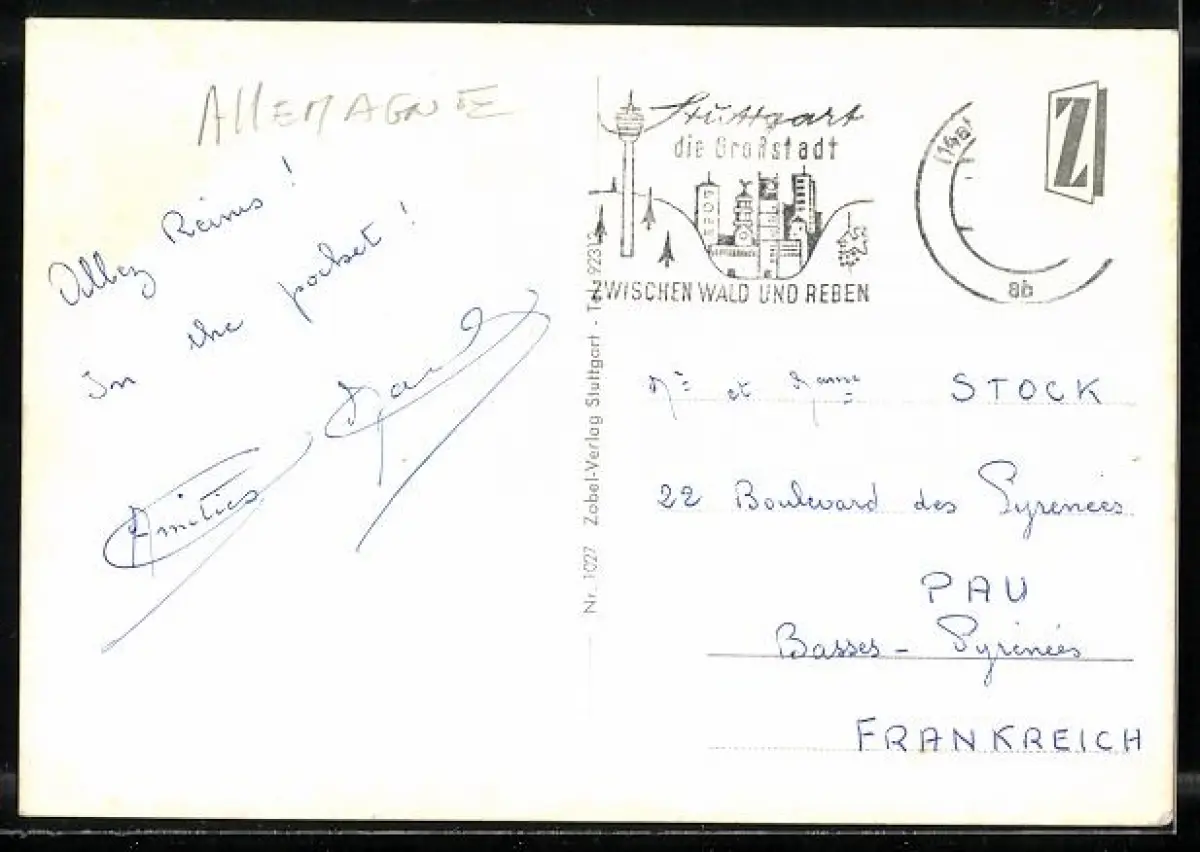 ALLEMAGNE
Allez Reims !
In the pocket !
Amitiés
Stuttgart
die Großstadt
ZWISCHEN WALD UND REBEN
8b
Z
Nr. 1027 Zobel-Verlag Stuttgart - Tel. 92313
Mr et Mame STOCK
22 Boulevard des Pyrenées
PAU
Basses - Pyrénées
FRANKREICH